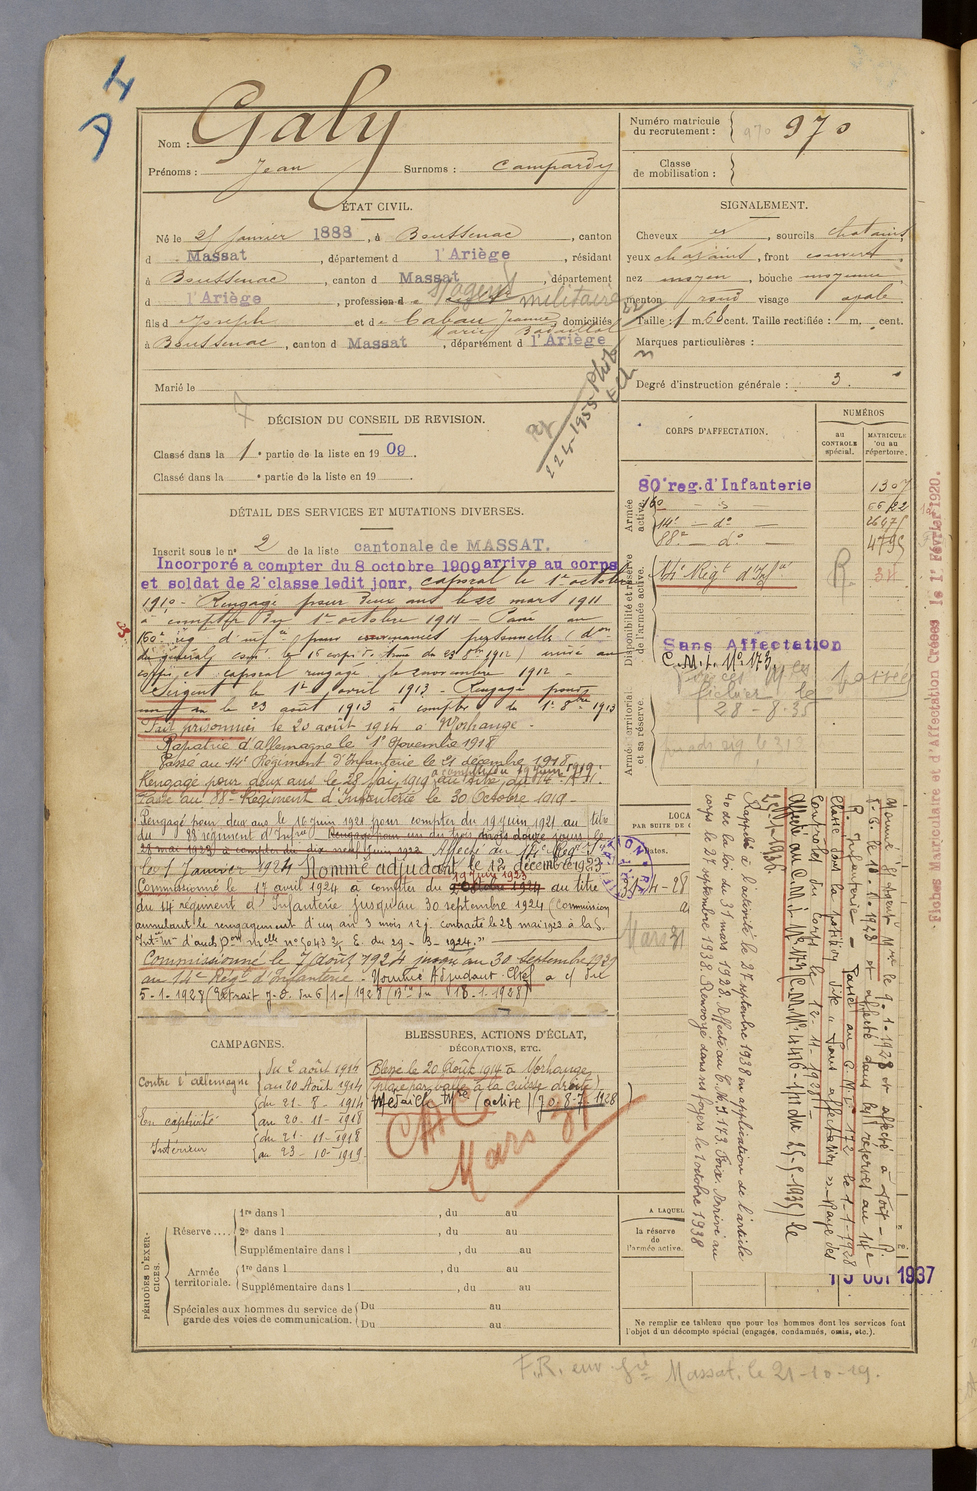 A 4
Nom : Galy
Prénoms : Jean Surnoms : Campardy
Numéro matricule du recrutement : 970 970
Classe de mobilisation :
ÉTAT CIVIL.
Né le janvier 1888, à Boussenac, canton
d Massat, département d l'Ariège, résidant
à Boussenac, canton d Massat, département
d l'Ariège, profession d militaire
fils d Joseph et de Cabau Jeanne Marie domiciliés
à Boussenac, canton d Massat, département d l'Ariège
Marié le
SIGNALEMENT.
Cheveux et, sourcils chatains,
yeux chatains, front couvert,
nez moyen, bouche moyenne
menton rond visage ovale
Taille : 1 m. 68 cent. Taille rectifiée : 1 m. cent.
Marques particulières :
Degré d'instruction générale : 3.
DÉCISION DU CONSEIL DE REVISION.
Classé dans la 1e partie de la liste en 1909.
Classé dans la e partie de la liste en 19
22-4-1955
DÉTAIL DES SERVICES ET MUTATIONS DIVERSES.
Inscrit sous le n° 2 de la liste cantonale de MASSAT.
Incorporé a compter du 8 octobre 1909 arrive au corps
et soldat de 2e classe ledit jour, caporal le 1er octobre
1910 - Rengagé pour deux ans le 22 mars 1911
à compter du 1er octobre 1911 - Passé au
160e rég d'infie pour convenances personnelles (don
du général comt le 16e corps d'armée du 23 8bre 1912) arrivé au
corps et caporal rengagé le novembre 1912 -
Sergent le 1er avril 1913 - Rengagé pour
un an le 23 août 1913 à compter du 1er 8bre 1913
Fait prisonnier le 20 août 1914 à Morhange -
Rapatrié d'allemagne le 1er Novembre 1918
Passé au 14e Régiment d'Infanterie le 21 décembre 1918
Rengagé pour deux ans le 28 Mai 1919 à compter du 19 Juin 1919 au titre du 14e R.I.
Passé au 88e Régiment d'Infanterie le 30 Octobre 1919 -
Rengagé pour deux ans le 16 Juin 1921 pour compter du 19 Juin 1921 au titre
du 88 régiment d'Infie Rengagé pour un an trois mois douze jours le
28 mai 1923 à compter du dix neuf Juin 1923 Affecté au 14e Régt d'Inf.
le 1er Janvier 1924 Nommé adjudant le 12 décembre 1923
Commissionné le 17 avril 1924 à compter du 19 Juin 1923 au titre
du 14 régiment d'Infanterie jusqu'au 30 septembre 1924 (Commission
annulant le rengagement d'un an 3 mois 12 j. contracté le 28 mai 1923 à la S.
Intce Mre d'auch Don Mlle n° 5043 E. du 29-3-1924."
Commissionné le 7 août 1924 jusqu'au 30 septembre 1929
au 14e Régt d'Infanterie - Nommé Adjudant-Chef
5-1-1928 (Extrait J.O. du 6/1/1928
CORPS D'AFFECTATION.
NUMÉROS
AU CONTROLE spécial.
MATRICULE ou au répertoire.
Armée active.
80e reg. d'Infanterie 1307
160 - 
14e - do - 2697
88e - do - 4795
Disponibilité et réserve de l'armée active.
14e Régt d'Infie R. 34
Sans Affectation
C.M.I. N° 173
fichier le
28-8-35
Armée territoriale et sa réserve.
LOCA
PAR SUITE DE C
Dates.
4-28
Mars 31
Nommé le 9.1.1928 et affecté à
R. Infanterie - Passé au C.M.I. 173 le 1-1-1928
Classé dans la position dite "sans affectation" - Rayé des
contrôles du corps le 12-11-1929
Affecté au C.M.I. N° 173 (C.M. N° 4416-1/pr du 25-9-1935) le
Rappelé à l'activité le 27 septembre 1938 en application de l'article
40 de la loi du 31 mars 1928. Affecté au C.M.I. 173. Foix. Arrivé au
corps le 27 septembre 1938. Renvoyé dans ses foyers le 1 octobre 1938
CAMPAGNES.
Contre l'allemagne du 2 août 1914
au 20 Août 1914
En captivité du 21-8-1914
au 20-11-1918
Intérieur du 21-11-1918
au 23-10-1919
BLESSURES, ACTIONS D'ÉCLAT,
DÉCORATIONS, ETC.
Blessé le 20 Août 1914 à Morhange
(plaie par balle à la cuisse droite)
Médaille Mre (active)
CAC
Mars 31
PÉRIODES D'EXERCICES.
Réserve....
1re dans l , du au
2e dans l , du au
Supplémentaire dans l , du au
Armée territoriale.
1re dans l , du au
Supplémentaire dans l , du au
Spéciales aux hommes du service de garde des voies de communication.
Du au
Du au
A LAQUEL
la réserve de l'armée active.
15 OCT 1937
Ne remplir ce tableau que pour les hommes dont les services font
l'objet d'un décompte spécial (engagés, condamnés, omis, etc.).
F.R. env Gie Massat, le 21-10-19.
Fiches Matriculaire et d'Affectation Créées le 1er Février 1920.